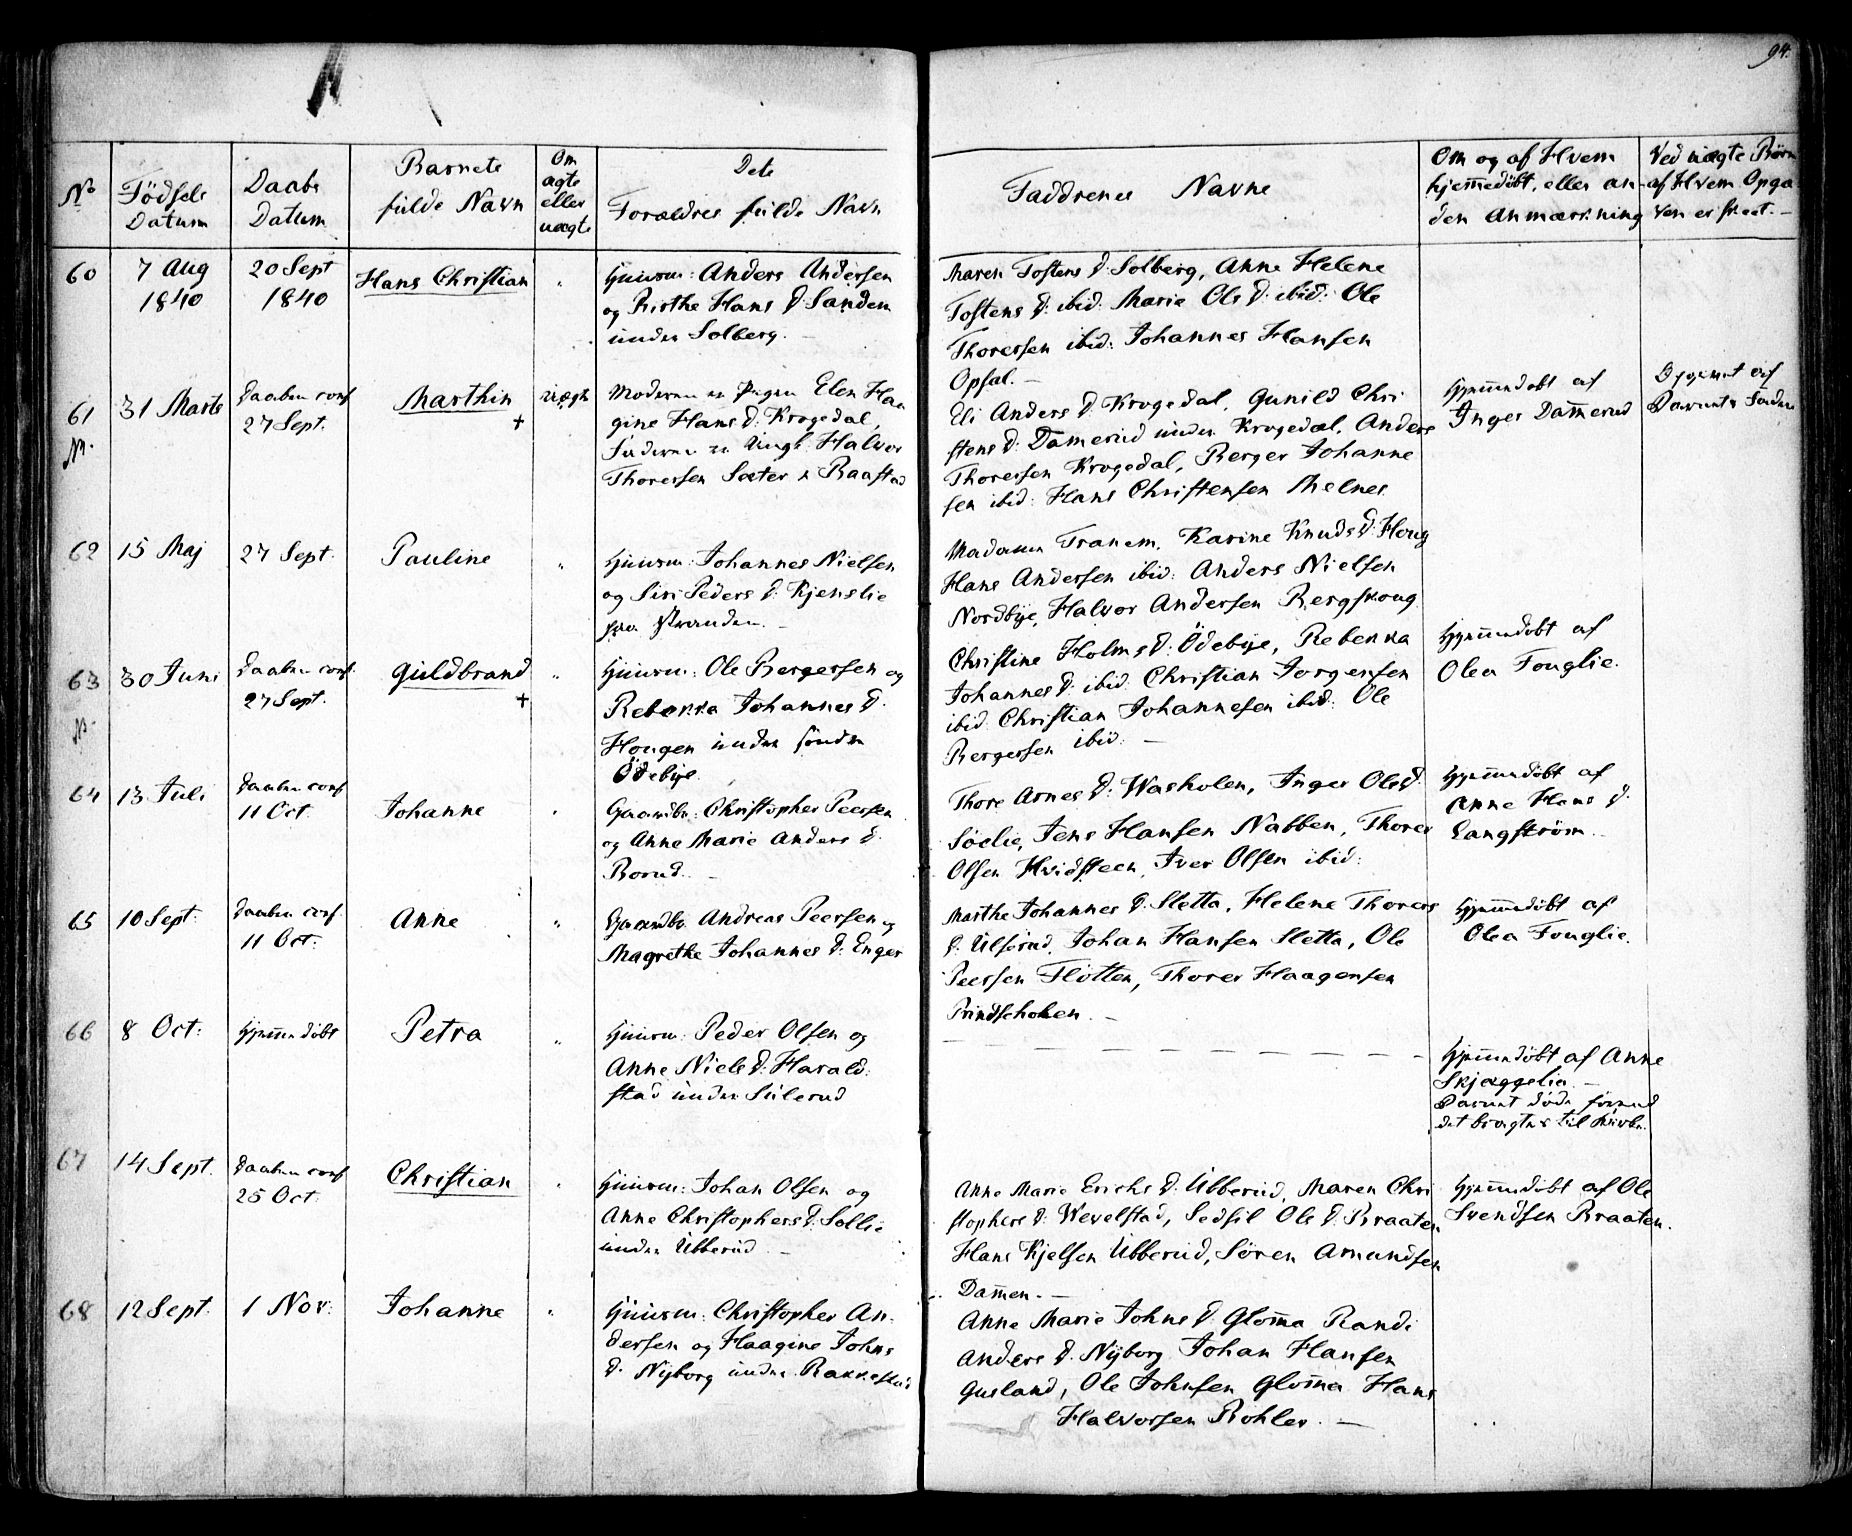 94.
No
Födsels
Datum
Daabs
Datum
Barnets
fulde Navn
Om
ægte
eller
uægte
Dets
Forældres fulde Navn
Faddrenes Navne
Om og af Hvem
hjemmedöbt, eller an-
den Anmærkning
Ved uægte Börn
af Hvem Opga
ven er skeet.-
60
7 Aug
1840
20 Sept
1840
Hans Christian
"
Huusm: Anders Andersen
og Birthe Hans D. Sanden
under Solberg. -
Maren Tostens D. Solberg, Anne Helene
Tostens D. ibid: Marie Ols D. ibid: Ole
Thoressen ibid: Johannes Hansen
Opsal. -
61
31 Marts
Daaben conf
27 Sept.
Marthin
+
uægte
Moderen er Pigen Elen Haa
gine Hans D. Krogedal,
Faderen er Ungk. Halvor
Thoressen Sæter Raastad
Eli Anders D. Krogedal, Gunild Chri
stens D. Damerud under Krogedal, Anders
Thoressen Krogedal, Berger Johanne
sen ibid: Hans Christensen Melnes
Hjemmedöbt af
Inger Damerud
Opgivet af
Barnets Fader
62
15 Maj
27 Sept.
Pauline
"
Huusm: Johannes Nielsen
og Siri Peders D. Kjenslie
paa Stranden. -
Madam Tranem, Karine Knuds D. Houg
Hans Andersen ibid: Anders Nielsen
Nordbye, Halvor Andersen Bergskoug
63
30 Juni
Daaben conf
27 Sept.
Guldbrand
+
"
Huusm: Ole Bergersen og
Rebekka Johannes D.
Hougen under söndre
Ödebye.
Christine Holms D. Ödebye, Rebekka
Johannes D. ibid: Christian Jorgensen
ibid: Christian Johannesen ibid: Ole
Bergersen ibid. -
Hjemmedöbt af
Olea Fouglie.
64
13 Juli
Daaben conf
11 Oct.
Johanne
"
Gaardbr: Christopher Peersen
og Anne Marie Anders D.
Borud. -
Thore Arnes D. Washolen, Inger Ols D.
Södlie, Jens Hansen Nabben, Thorer
Olsen Hvidsteen, Iver Olsen ibid:
Hjemmedöbt af
Anne Hans D.
Langström.
65
10 Sept.
Daaben conf.
11 Oct:
Anne
"
Gaardbr. Andreas Peersen og
Magrethe Johannes D. Enger
Marthe Johannes D. Sletta, Helene Thorers
D. Ulsrud, Johan Hansen Sletta, Ole
Peersen Flotten, Thorer Haagensen
Prindseholen. -
Hjemmedöbt af
Olea Fouglie.
66
8 Oct:
Hjemmedöbt
Petra
"
Huusm: Peder Olsen og
Anne Niels D. Harald-
stad under Sulerud
- - - - - - - - -
Hjemmedöbt af Anne
Skjæggelia. -
Barnet döde förend
det bragtes til Kirke.
67
14 Sept.
Daaben conf
25 Oct.
Christian
"
Huusm: Johan Olsen og
Anne Christophers D. Sollie
under Ubberud -
Anne Marie Erichs D. Ubberud, Maren Chri
stophers D. Wevelstad, Sedsil Ols D. Braaten
Hans Kjelsen Ubberud, Sören Amundsen
Dammen. -
Hjemmedöbt af Ole
Svendsen Braaten.
68
12 Sept.
1 Nov:
Johanne
"
Huusm: Christopher An-
dersen og Haagine Johns
D. Nyborg under Rakkestad
Anne Marie Johns D. Glomma Randi
Anders D. Nyborg Johan Hansen
Gusland, Ole Johnsen Glomma Hans
Halvorsen Bohler. -